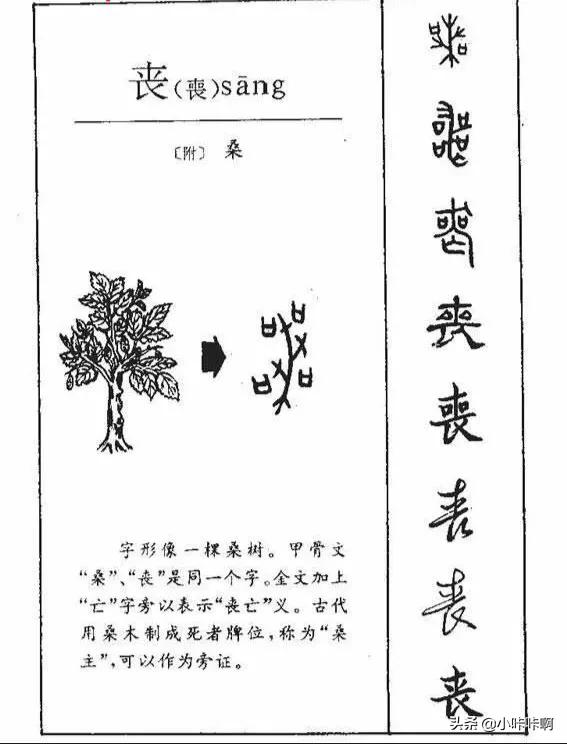 丧(喪)sāng
〔附〕 桑
字形像一棵桑树。甲骨文
“桑”、“丧”是同一个字。金文加上
“亡”字旁以表示“丧亡”义。古代
用桑木制成死者牌位,称为“桑
主”,可以作为旁证。
喪
喪
丧
头条 @小咔咔啊